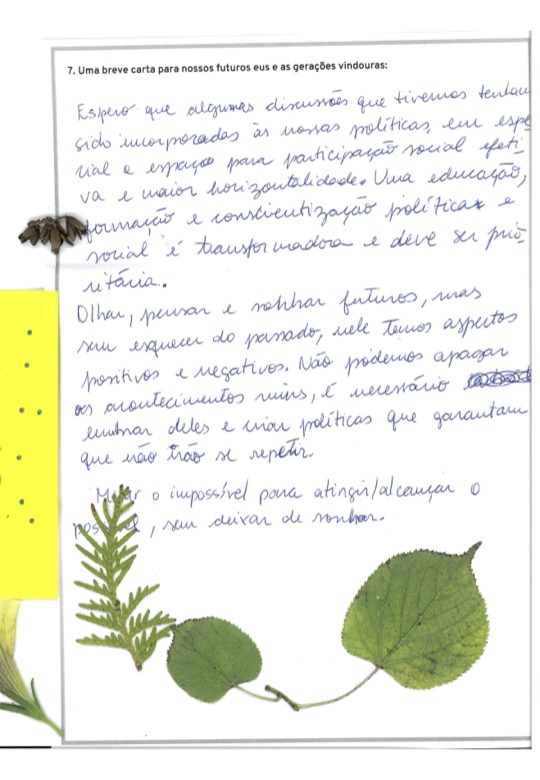 7. Uma breve carta para nossos futuros eus e as gerações vindouras:
Espero que algumas discussões que tivemos tenham
sido incorporadas às nossas políticas, em espe-
cial o espaço para participação social efeti-
va e maior horizontalidade. Uma educação,
formação e conscientização política e
social é transformadora e deve ser prio-
ritária.
Olhar, pensar e sonhar futuros, mas
sem esquecer do passado, nele temos aspectos
positivos e negativos. Não podemos apagar
os acontecimentos ruins, é necessário
lembrar deles e criar políticas que garantam
que não irão se repetir.
o impossível para atingir/alcançar o
, sem deixar de sonhar.